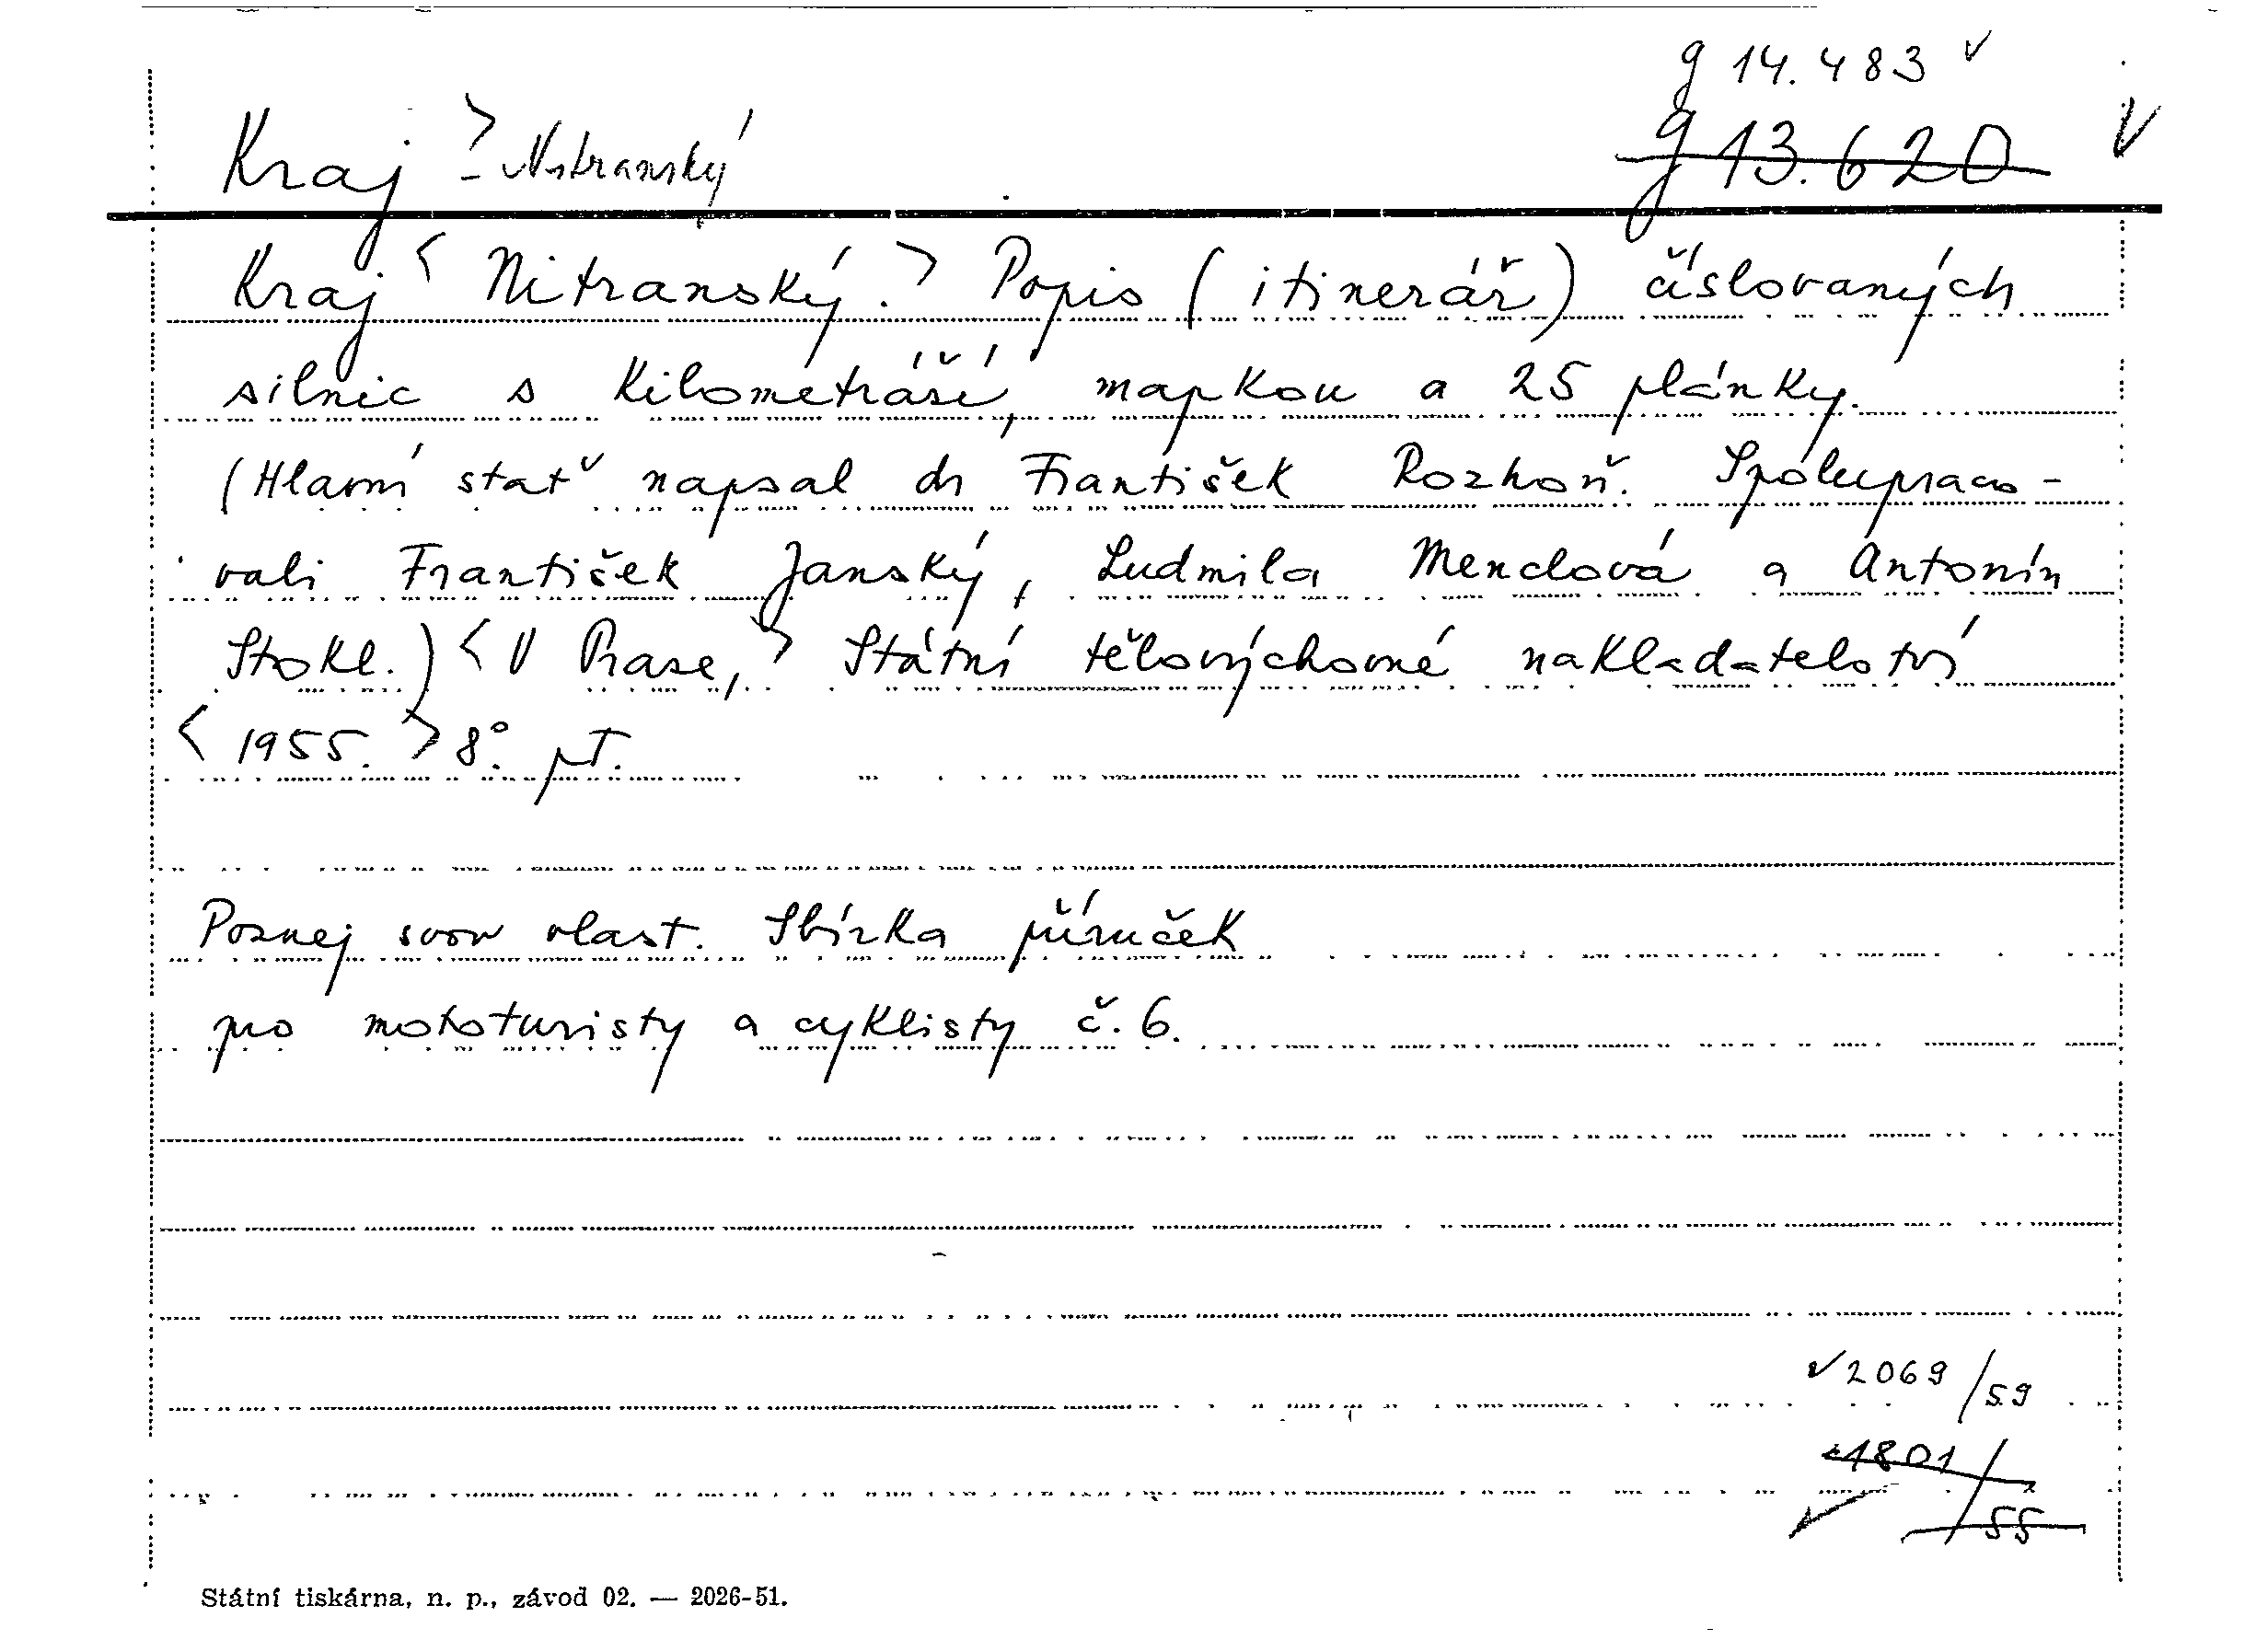 g 14.483 v
Kraj > - Nitranský
g 13.620 V
Kraj < Nitranský. > Popis (itinerář) číslovaných
silnic s kilometráší, mapkou a 25 plánky.
(Hlavní stať napsal dr František Rozhoň. Spolupraco-
vali František Janský, Ludmila Menclová a Antonín
Stokl.) < V Praze, > Státní tělovýchovné nakladatelství
< 1955. > 8°. pT.
Poznej svou vlast. Sbírka příruček
pro mototuristy a cyklisty č. 6.
2069/59
1801/55
Státní tiskárna, n. p., závod 02. — 2026-51.